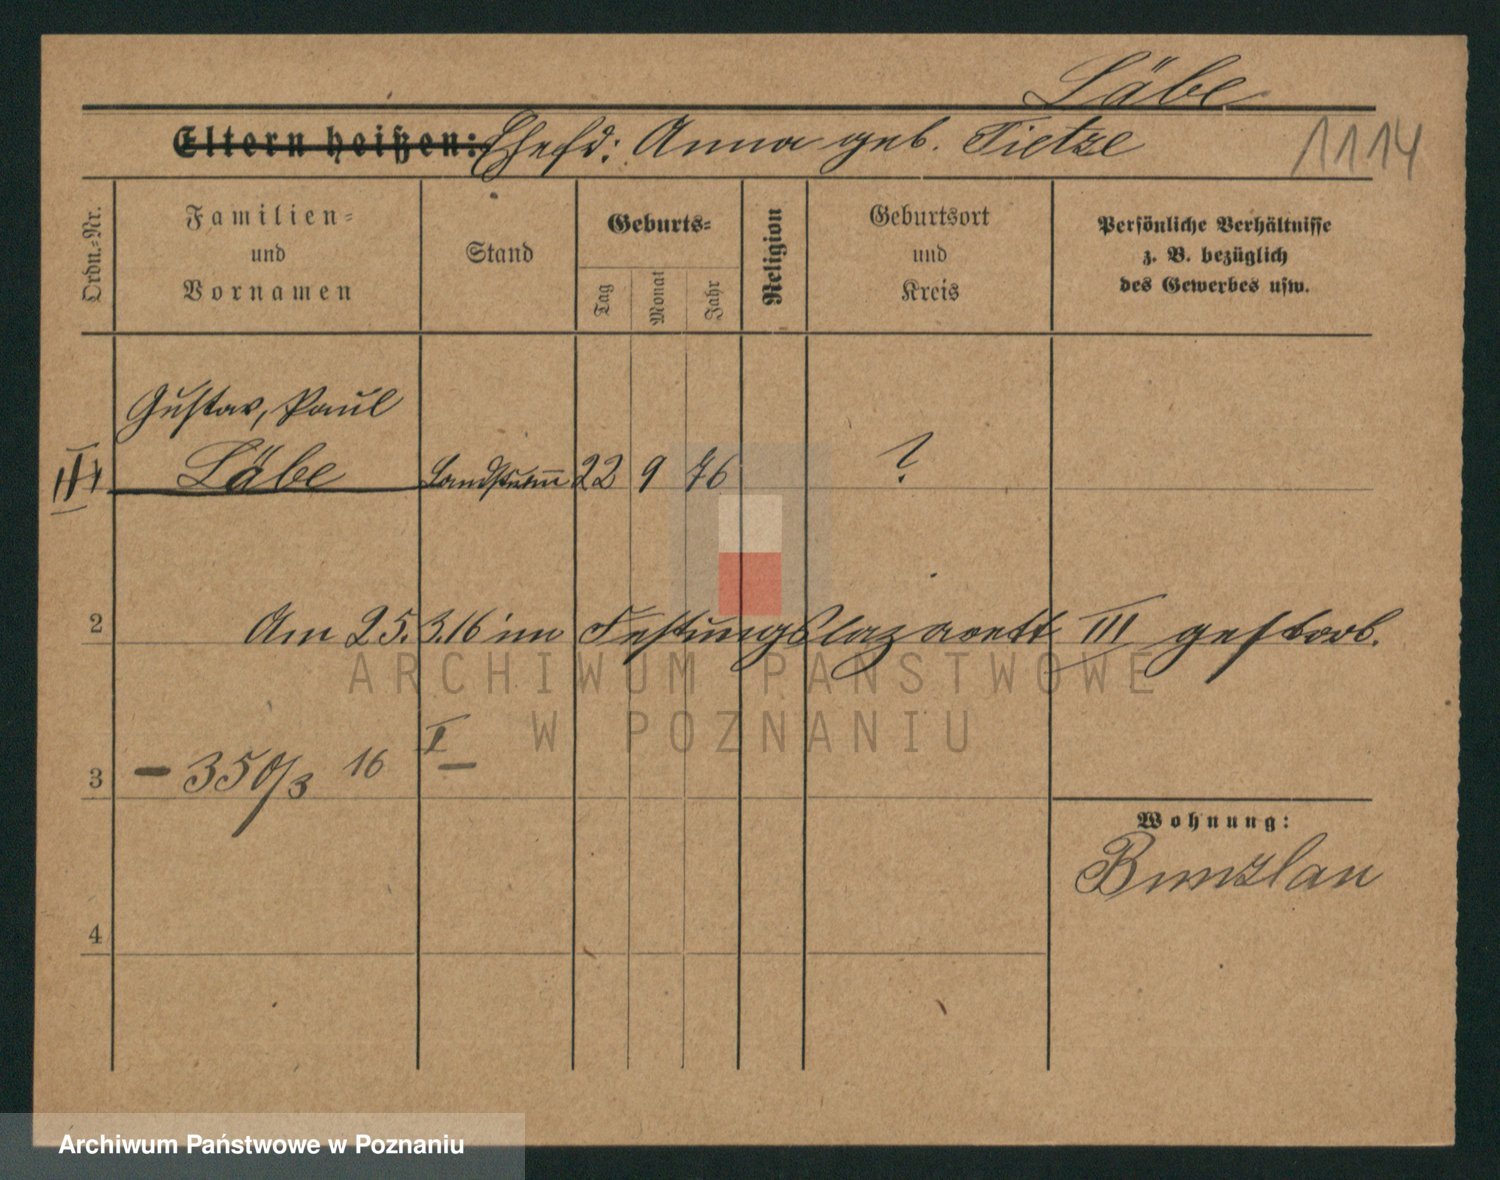 Läbe
Eltern heißen: Ehefr: Anna geb. Tietze
1114
Ordn.-Nr.
Familien-
und
Vornamen
Stand
Geburts-
Tag
Monat
Jahr
Religion
Geburtsort
und
Kreis
Persönliche Verhältnisse
z. B. bezüglich
des Gewerbes usw.
Gustav, Paul
Läbe
Landsturm 22 9 76 ?
III
2
Am 25.3.16 im Festungslazarett III gestorb.
ARCHIWUM PAŃSTWOWE
W POZNANIU
3
- 350/3 16 I
Wohnung:
Bunzlau
4
Archiwum Państwowe w Poznaniu